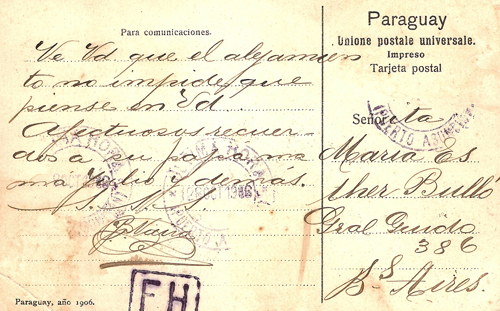 Para comunicaciones.
Ve Vd que el alejamien
to no impide que
piense en Vd.
Afectuosos recuer-
dos a su papá, ma
má, y demás.
Paraguay, año 1906.
FH
Paraguay
Unione postale universale.
Impreso
Tarjeta postal
Señorita
Maria Es
ther Bulló
Gral Guido
386
Bs Aires.